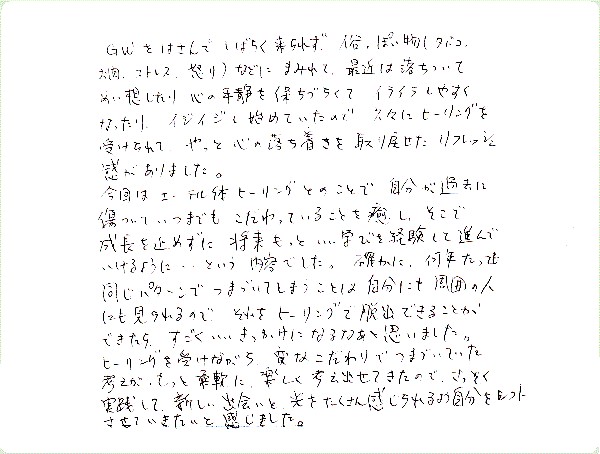 GWをはさんでしばらく来られず、俗っぽい物(タバコ、
お肉、ストレス、怒り)などにまみれて、最近は落ちついて
めい想したり心の平静を保ちづらくて イライラしやすく
なったり、イジイジし始めていたので、久々にヒーリングを
受けられて、やっと心の落ち着きを取り戻せたリフレッシュ
感がありました。
今回はエーテル体ヒーリングとのことで 自分が過去に
傷ついていつまでもこだわっていることを癒し、そこで
成長を止めずに 将来もっといい学びを経験して進んで
いけるように・・という内容でした。確かに、何年たっても
同じパターンでつまづいてしまうことは自分にも周囲の人
にも見られるので、それをヒーリングで脱出できることが
できたら、すごくいいきっかけになるなあと思いました。
ヒーリングを受けながら、変なこだわりでつまづいていた
考えが、もっと柔軟に、楽しく考え出せてきたので、さっそく
実践して、新しい出会いと、光をたくさん感じられるよう自分をセット
させていきたいと感じました。